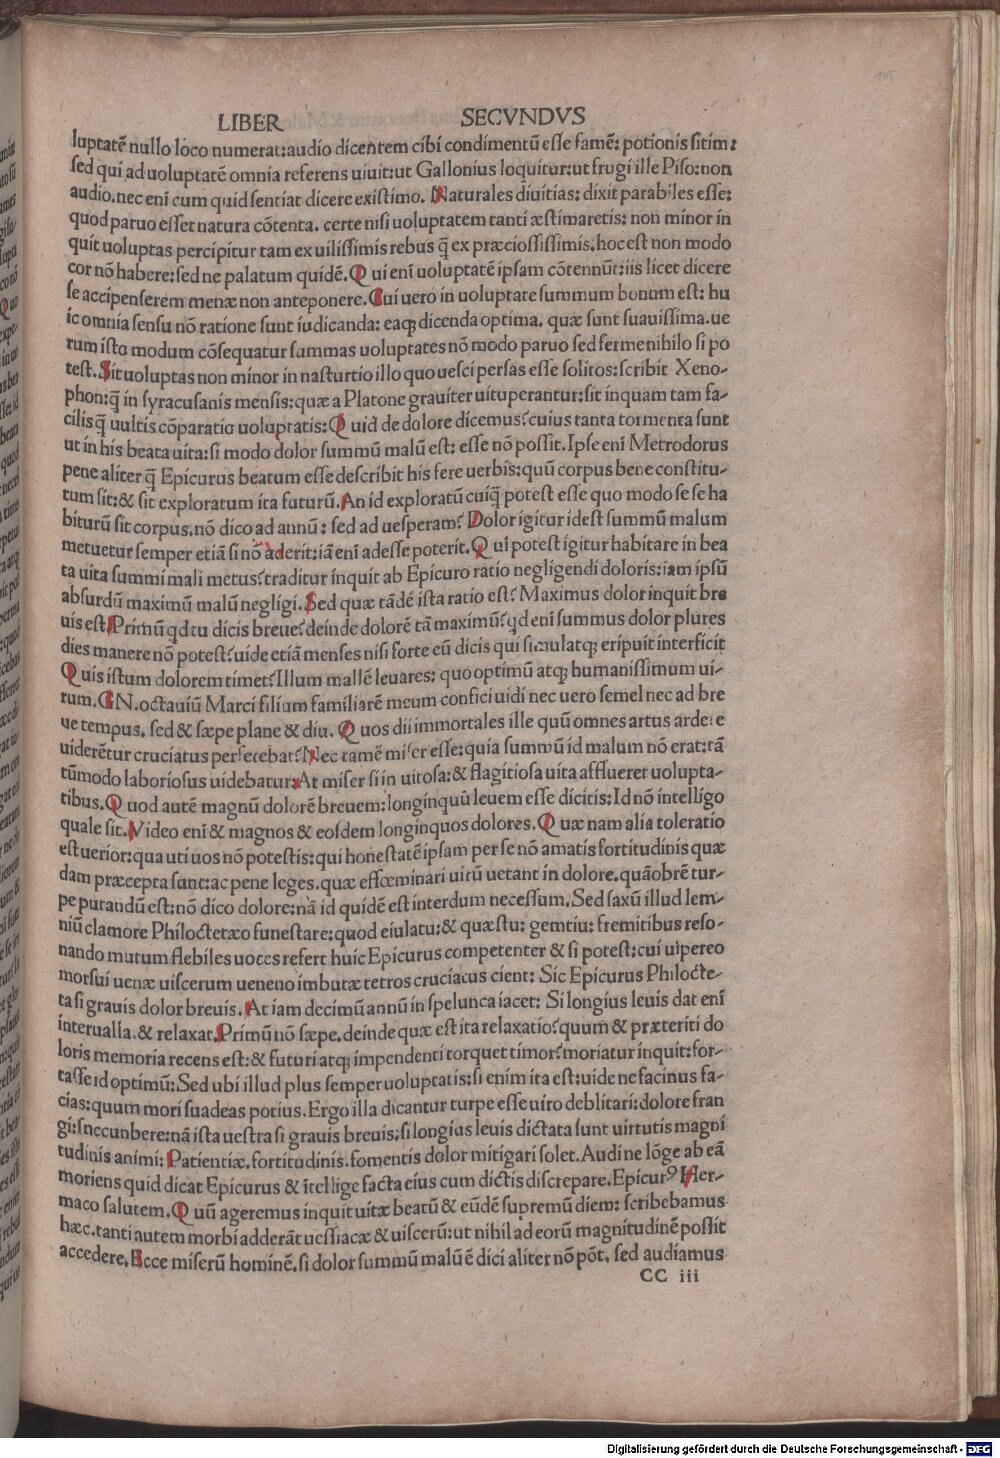 105
LIBER SECVNDVS
luptatē nullo loco numerat:audio dicentem cibi condimentū esse famē: potionis sitim:
sed qui ad uoluptatē omnia referens uiuit:ut Gallonius loquitur:ut frugi ille Piso:non
audio.nec eni cum quid sentiat dicere existimo. Naturales diuitias: dixit parabiles esse:
quod paruo esset natura cōtenta. certe nisi uoluptatem tanti æstimaretis: non minor in
quit uoluptas percipitur tam ex uilissimis rebus q̄ ex præciosissimis.hoc est non modo
cor nō habere:sed ne palatum quidē. Qui eni uoluptatē ipsam cōtennūt:iis licet dicere
se accipenserem menæ non anteponere. Cui uero in uoluptate summum bonum est: hu
ic omnia sensu nō ratione sunt iudicanda: eaq; dicenda optima. quæ sunt suauissima.ue
rum isto modum cōsequatur summas uoluptates nō modo paruo sed ferme nihilo si po
test. Sit uoluptas non minor in nasturtio illo quo uesci persas esse solitos:scribit Xeno-
phon:q̄ in syracusanis mensis:quæ a Platone grauiter uituperantur:sit inquam tam fa-
cilis q̄ uultis cōparatio uoluptatis: Quid de dolore dicemus?cuius tanta tormenta sunt
ut in his beata uita:si modo dolor summū malū est: esse nō possit.Ipse eni Metrodorus
pene aliter q̄ Epicurus beatum esse describit his fere uerbis:quū corpus bene constitu-
tum sit:& sit exploratum ita futurū. An id exploratū cuiq̄ potest esse quo modo se se ha
biturū sit corpus.nō dico ad annū: sed ad uesperam? Dolor igitur idest summū malum
metuetur semper etiā si nō aderit:iā eni adesse poterit. Qui potest igitur habitare in bea
ta uita summi mali metus?traditur inquit ab Epicuro ratio negligendi doloris:iam ipsū
absurdū maximū malū negligi. Sed quæ tādē ista ratio est? Maximus dolor inquit bre
uis est. Primū qd tu dicis breue?deinde dolorē tā maximū?qd eni summus dolor plures
dies manere nō potest?uide etiā menses nisi forte eū dicis qui simulatq; eripuit interficit
Quis istum dolorem timet?Illum mallē leuares: quo optimū atq; humanissimum ui-
rum. GN.octauiū Marci filium familiarē meum confici uidi nec uero semel nec ad bre
ue tempus. sed & sæpe plane & diu. Quos dii immortales ille quū omnes artus ardere
uiderētur cruciatus perferebat? Nec tamē miser esse:quia summū id malum nō erat:tā
tūmodo laboriosus uidebatur: At miser si in uitosa:& flagitiosa uita afflueret uolupta-
tibus. Quod autē magnū dolorē breuem:longinquū leuem esse dicitis:Id nō intelligo
quale sit. Video eni & magnos & eosdem longinquos dolores. Quæ nam alia toleratio
est uerior:qua uti uos nō potestis:qui honestatē ipsam per se nō amatis fortitudinis quæ
dam præcepta sunt:ac pene leges.quæ effœminari uirū uetant in dolore.quāobrē tur-
pe putandū est:nō dico dolore:nā id quidē est interdum necessum. Sed saxū illud lem-
niū clamore Philoctetæo funestare:quod eiulatu:& quæstu: gemtiu: fremitibus reso-
nando mutum flebiles uoces refert huic Epicurus competenter & si potest:cui uipereo
morsui uenæ uiscerum ueneno imbutæ tetros cruciacus cient: Sic Epicurus Philocte-
ta si grauis dolor breuis. At iam decimū annū in spelunca iacet: Si longius leuis dat eni
interualla.& relaxat. Primū nō sæpe.deinde quæ est ita relaxatio?quum & præteriti do
loris memoria recens est:& futuri atq; impendenti torquet timor?moriatur inquit:for-
tasse id optimū:Sed ubi illud plus semper uoluptatis:si enim ita est:uide ne facinus fa-
cias:quum mori suadeas potius. Ergo illa dicantur turpe esse uiro deblitari:dolore fran
gi:snccunbere:nā ista uestra si grauis breuis:si longius leuis dictata sunt uirtutis magni
tudinis animi: Patientiæ.fortitudinis.fomentis dolor mitigari solet.Audi ne lōge ab eā
moriens quid dicat Epicurus & ītellige facta eius cum dictis discrepare.Epicurꝰ Her-
maco salutem. Quū ageremus inquit uitæ beatū & eūdē supremū diem: scribebamus
hæc.tanti autem morbi adderāt uessiacæ & uiscerū:ut nihil ad eorū magnitudinē possit
accedere. Ecce miserū hominē.si dolor summū malū ē dici aliter nō pōt. sed audiamus
CC iii
Digitalisierung gefördert durch die Deutsche Forschungsgemeinschaft - DFG